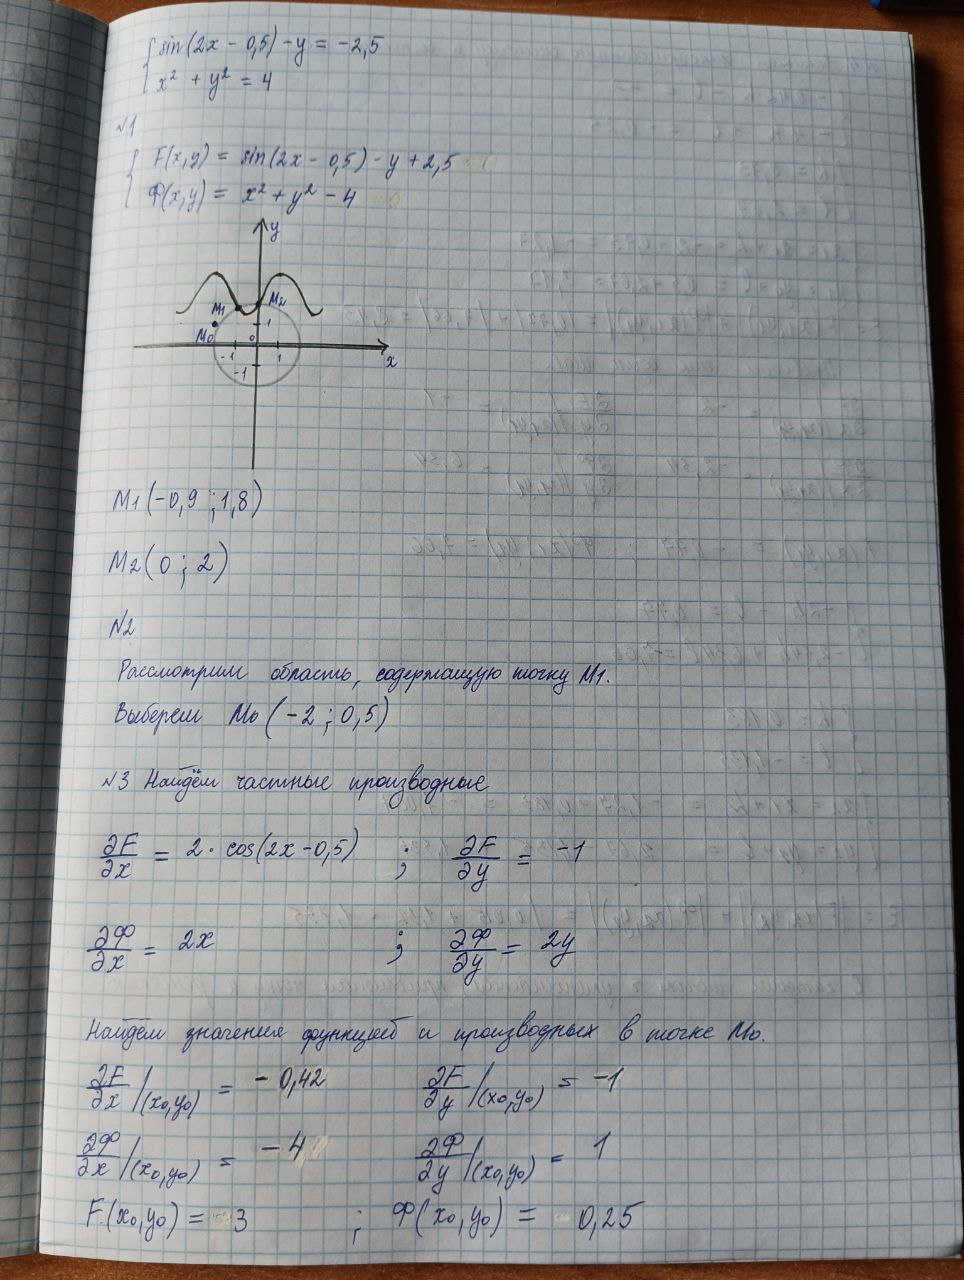 sin(2x - 0,5) - y = -2,5
x² + y² = 4
№1
F(x,y) = sin(2x - 0,5) - y + 2,5
Ф(x,y) = x² + y² - 4
y
M1 M2
M0 1
-1 0 1 x
-1
M1(-0,9 ; 1,8)
M2(0 ; 2)
№2
Рассмотрим область, содержащую точку M1.
Выберем M0(-2 ; 0,5)
№3 Найдём частные производные
∂F/∂x = 2·cos(2x-0,5) ; ∂F/∂y = -1
∂Ф/∂x = 2x ; ∂Ф/∂y = 2y
Найдём значения функций и производных в точке M0.
∂F/∂x|(x0,y0) = -0,42 ∂F/∂y|(x0,y0) = -1
∂Ф/∂x|(x0,y0) = -4 ∂Ф/∂y|(x0,y0) = 1
F(x0,y0) = 3 ; Ф(x0,y0) = 0,25